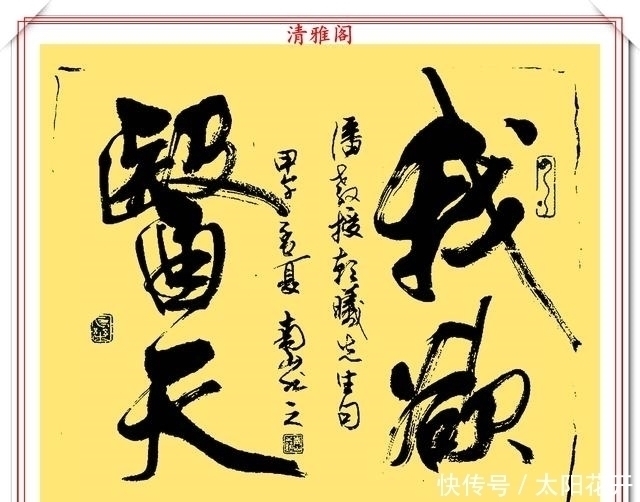 清雅阁
我欲
潘教授朝曦先生句
甲午夏南山
醫天
快传号 / 太阳花开